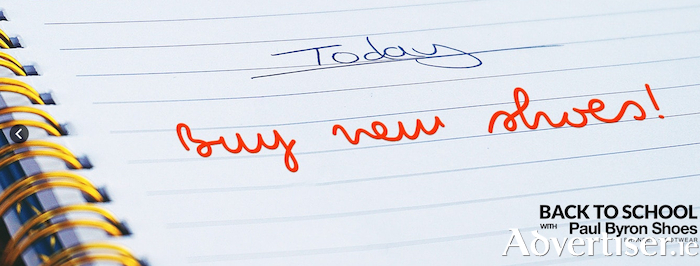 Today
Buy new shoes!
BACK TO SCHOOL
WITH Paul Byron Shoes
Advertiser.ie